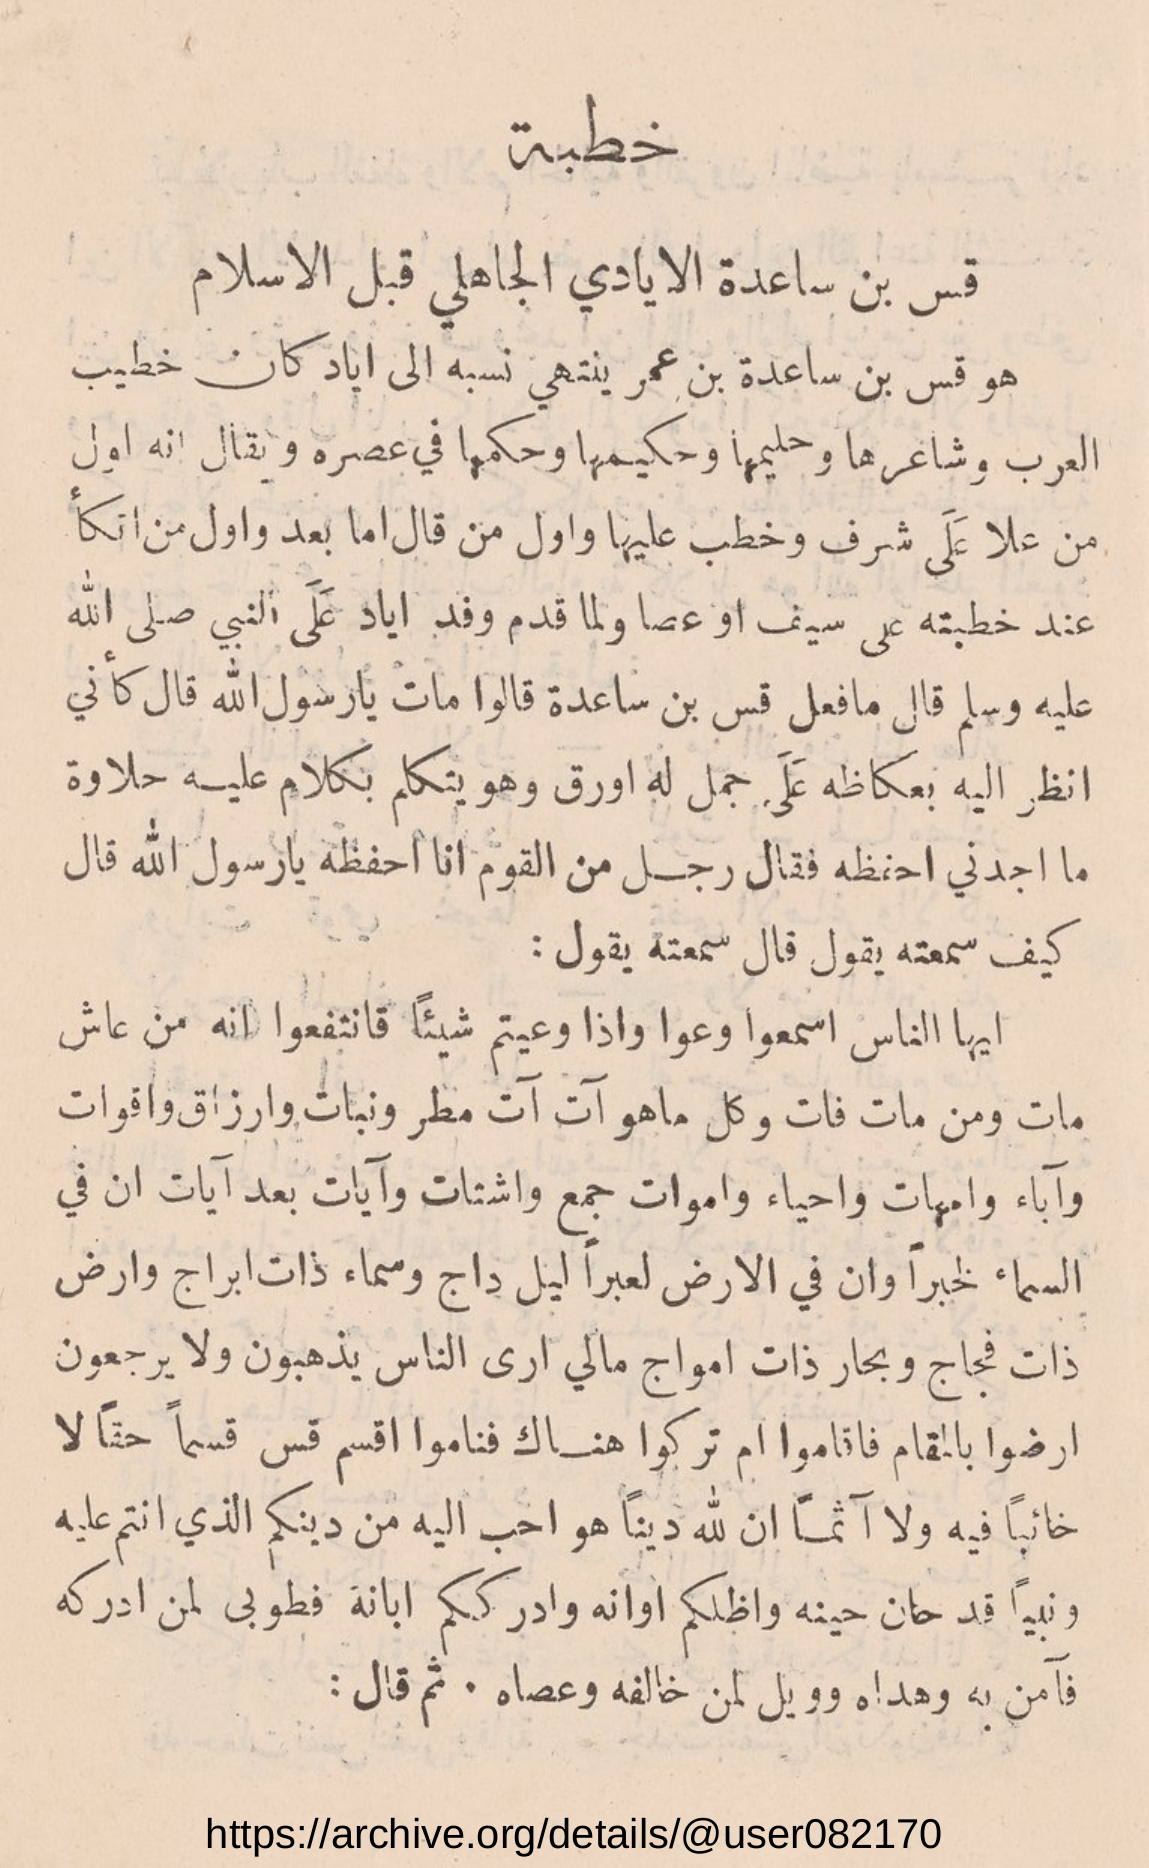 خطبة
قس بن ساعدة الايادي الجاهلي قبل الاسلام
هو قس بن ساعدة بن عمر ينتهي نسبه الى اياد كان خطيب
العرب وشاعرها وحليمها وحكيمها وحكمها في عصره ويقال انه اول
من علا عَلَى شرف وخطب عليها واول من قال اما بعد واول من اتكأ
عند خطبته على سيف او عصا ولما قدم وفد اياد عَلَى النبي صلى الله
عليه وسلم قال مافعل قس بن ساعدة قالوا مات يارسول الله قال كأني
انظر اليه بعكاظه عَلَى جمل له اورق وهو يتكلم بكلام عليه حلاوة
ما اجدني احفظه فقال رجل من القوم انا احفظه يارسول الله قال
كيف سمعته يقول قال سمعته يقول :
ايها الناس اسمعوا وعوا واذا وعيتم شيئًا قانتفعوا انه من عاش
مات ومن مات فات وكل ماهو آت آت مطر ونبات وارزاق واقوات
وآباء وامهات واحياء واموات جمع واشتات وآيات بعد آيات ان في
السماء لخبراً وان في الارض لعبراً ليل داج وسماء ذات ابراج وارض
ذات فجاج وبحار ذات امواج مالي ارى الناس يذهبون ولا يرجعون
ارضوا بالمقام فاقاموا ام تركوا هناك فناموا اقسم قس قسماً حقًا لا
خائبًا فيه ولا آثمًا ان لله دينًا هو احب اليه من دينكم الذي انتم عليه
ونبيًا قد حان حينه واظلكم اوانه وادرككم ابانة فطوبى لمن ادركه
فآمن به وهداه وويل لمن خالفه وعصاه . ثم قال :
https://archive.org/details/@user082170